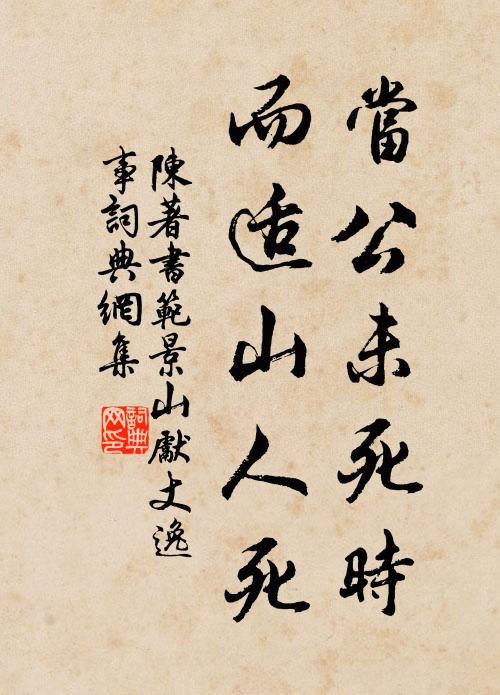 當公未死時
而适山人死
陳著書範景山獻丈逸
事詞典網集
詞典網印